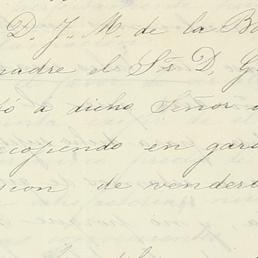 D. J. M. de la Ba
madre el Sr. D. G
ó a dicho Señor
copiendo en gara
sion de vender